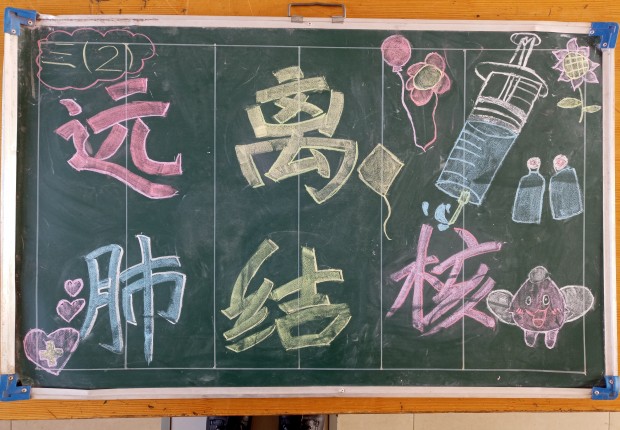 三(2)
远离
肺结核